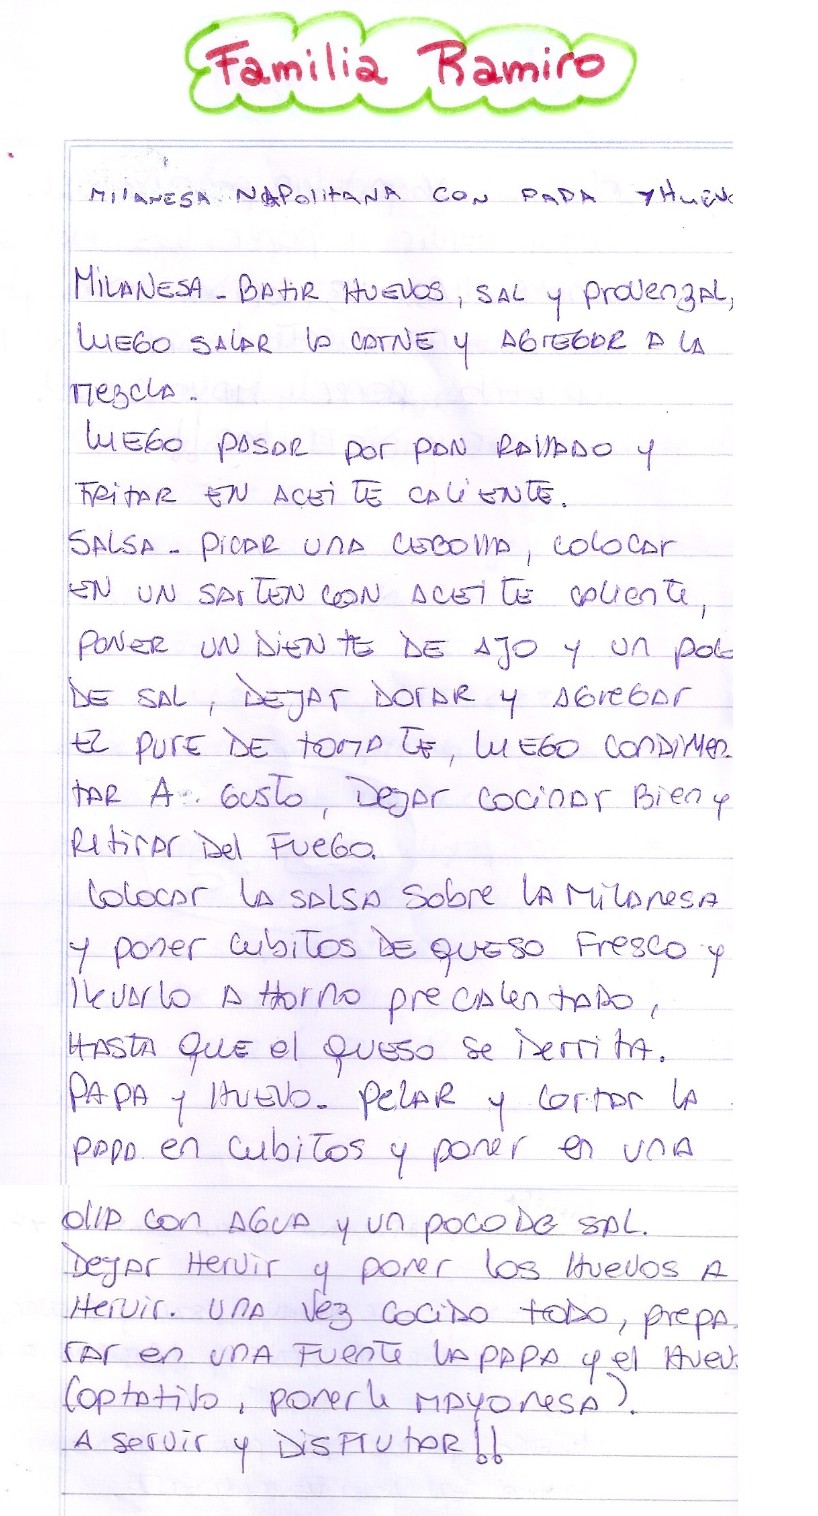 Familia Ramiro
MILANESA NAPOLITANA CON PAPA Y HUEV
MILANESA - BATIR HUEVOS, SAL y PROVENZAL,
LUEGO SALAR LA CARNE y AGREGAR A LA
MEZCLA.
LUEGO PASAR POR PAN RALLADO y
FRITAR EN ACEITE CALIENTE.
SALSA - PICAR UNA CEBOLLA, COLOCAR
EN UN SARTEN CON ACEITE CALIENTE,
PONER UN DIENTE DE AJO y UN POC
DE SAL, DEJAR DORAR y AGREGAR
EL PURE DE TOMATE, LUEGO CONDIMEN
TAR A GUSTO, DEJAR COCINAR BIEN y
RETIRAR DEL FUEGO.
COLOCAR LA SALSA SOBRE LA MILANESA
y PONER CUBITOS DE QUESO FRESCO y
LLEVARLO A HORNO PRECALENTADO,
HASTA QUE EL QUESO SE DERRITA.
PAPA y HUEVO - PELAR y CORTAR LA
PAPA EN CUBITOS y PONER EN UNA
OLLA CON AGUA y UN POCO DE SAL.
DEJAR HERVIR y PONER LOS HUEVOS A
HERVIR. UNA VEZ COCIDO TODO, PREPA
RAR EN UNA FUENTE LA PAPA y EL HUEV
(OPTATIVO, PONERLE MAYONESA).
A SERVIR y DISFRUTAR!!